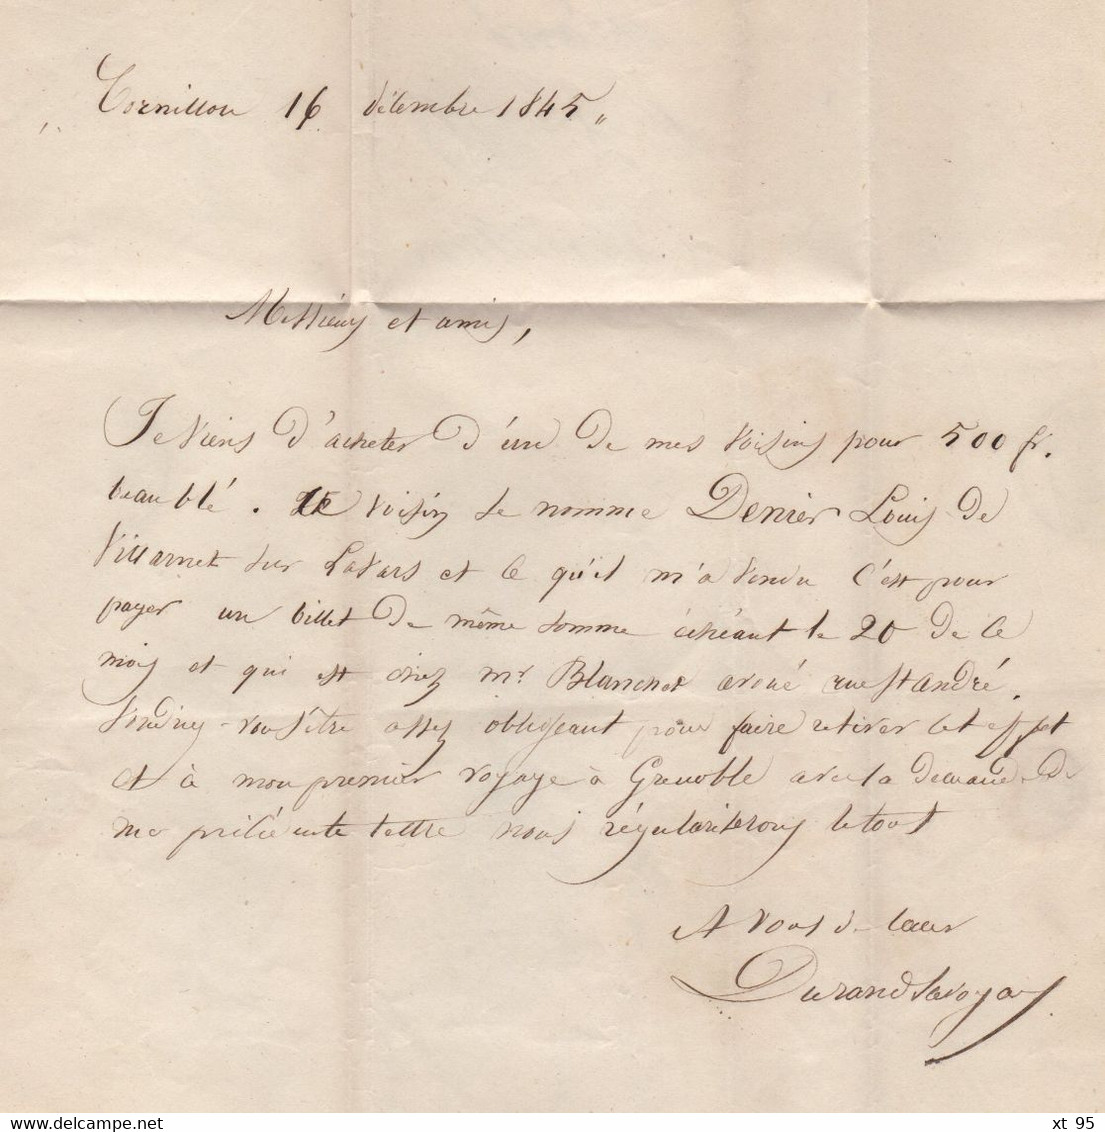 Cornillon 16 décembre 1845
Messieurs et amis,
Je viens d'acheter d'un de mes voisins pour 500 fr.
beau blé. Ce voisin se nomme Denier Louis de
Villarnet sur Lavars et ce qu'il m'a vendu c'est pour
payer un billet de même somme échéant le 20 de ce
mois et qui est chez mr. Blanchet avoué rue St André.
Voudriez-vous être assez obligeant pour faire retirer cet effet
et à mon premier voyage à Grenoble avec la demande de
ma précédente lettre nous régulariserons le tout
A vous de coeur
Durand Savoyas
xt 95